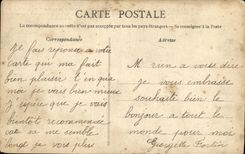 CARTE POSTALE
La correspondance au recto n'est pas acceptée par tous les pays étrangers. - Se renseigner à la Poste
Correspondance
Adresse
Je fais reponse a votre
Carte qui me fait
bien plaisir
moi je vais bien mieux
J'espère que je vais
bientot recommencer
car sa me semble
long je vois plus
M rien a vous dire
je vous embrasse
souhaite bien le
bonjour a tout le
monde pour moi
Georgette